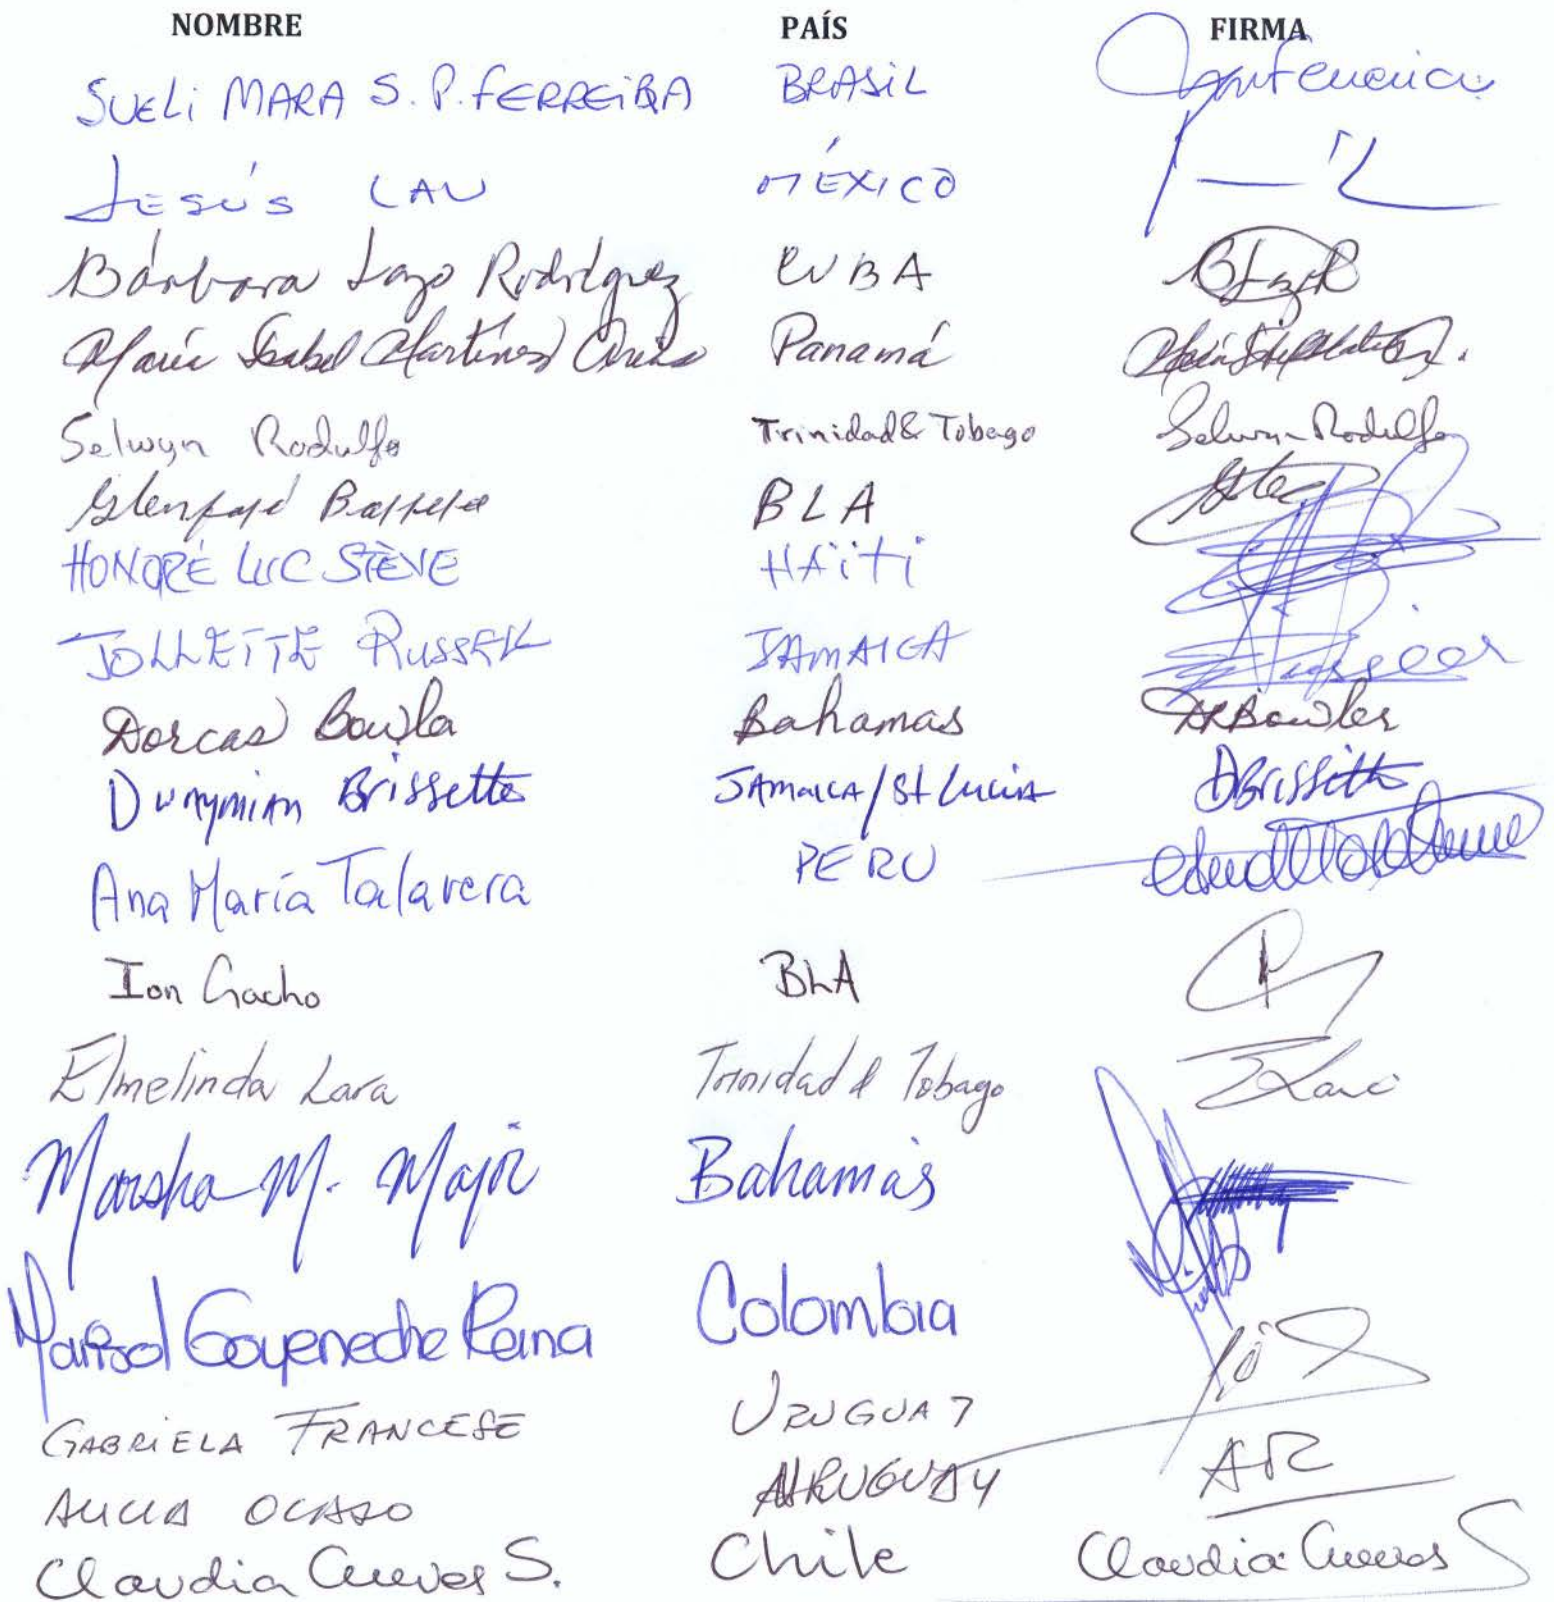 NOMBRE PAÍS FIRMA
SUELI MARA S. P. FERREIRA BRASIL
JESÚS LAU MÉXICO
Bárbara Lazo Rodríguez CUBA
María Isabel Martínez Panamá
Selwyn Rodulfo Trinidad & Tobago Selwyn Rodulfo
BLA
HONORÉ LUC STÈVE HAÏTI
JOLLETTE RUSSELL JAMAICA
Dorcas Bowla Bahamas Bowler
Brissette JAMAICA/St Lucia DBrissette
Ana María Talavera PERU
Ion Gacho BLA
Elmelinda Lara Trinidad & Tobago ELara
Marsha M. Major Bahamas
Marisol Goyeneche Reina Colombia
GABRIELA FRANCESE URUGUAY
ALICIA OCASO URUGUAY
Claudia Cuevas S. Chile Claudia Cuevas S